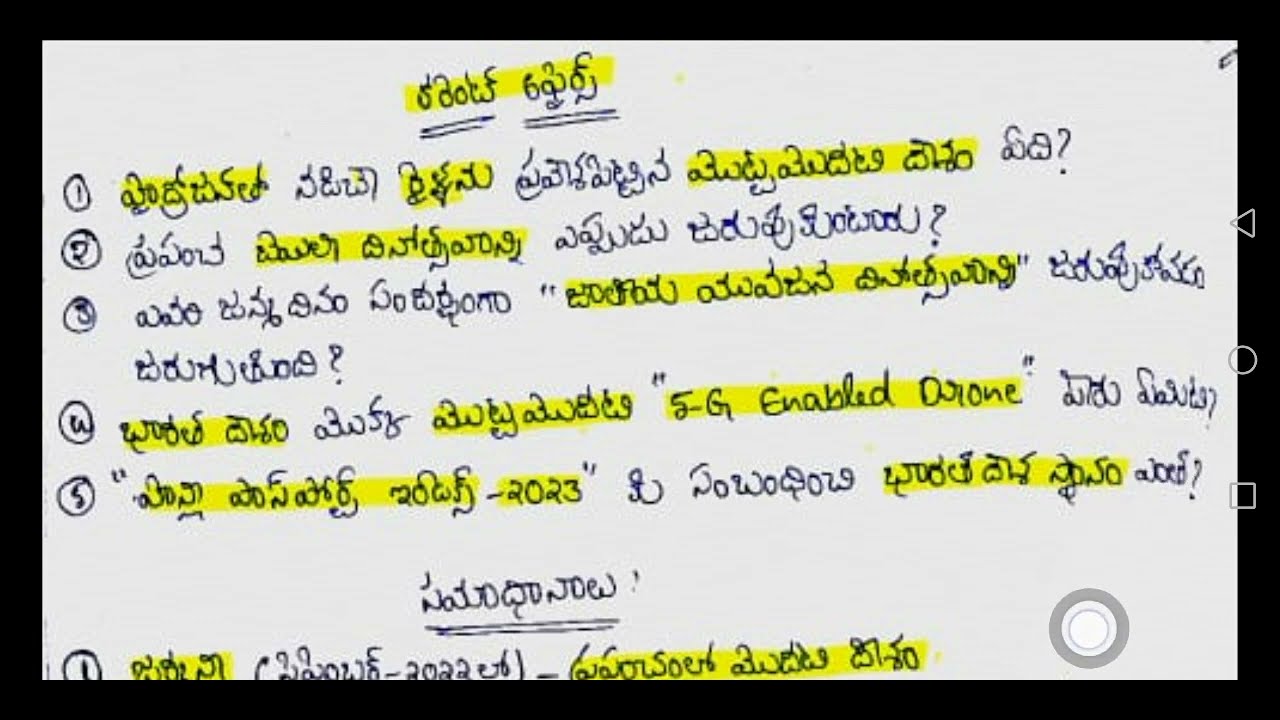 కరెంట్ అఫైర్స్
① హైడ్రోజన్‌తో నడిచే రైళ్ళను ప్రవేశపెట్టిన మొట్టమొదటి దేశం ఏది?
② ప్రపంచ హిందీ దినోత్సవాన్ని ఎప్పుడు జరుపుకుంటారు?
③ ఎవరి జన్మదినం సందర్భంగా "జాతీయ యువజన దినోత్సవాన్ని" జరుపుకోవడం
జరుగుతుంది?
④ భారత దేశం మొక్క మొట్టమొదటి "5-G Enabled Drone" పేరు ఏమిటి?
⑤ "హెన్లీ పాస్‌పోర్ట్ ఇండెక్స్ - 2023" కి సంబంధించి భారతదేశ స్థానం ఎంత?
సమాధానాలు:
① జర్మనీ (సెప్టెంబర్-2022లో) - ప్రపంచంలో మొదటి దేశం